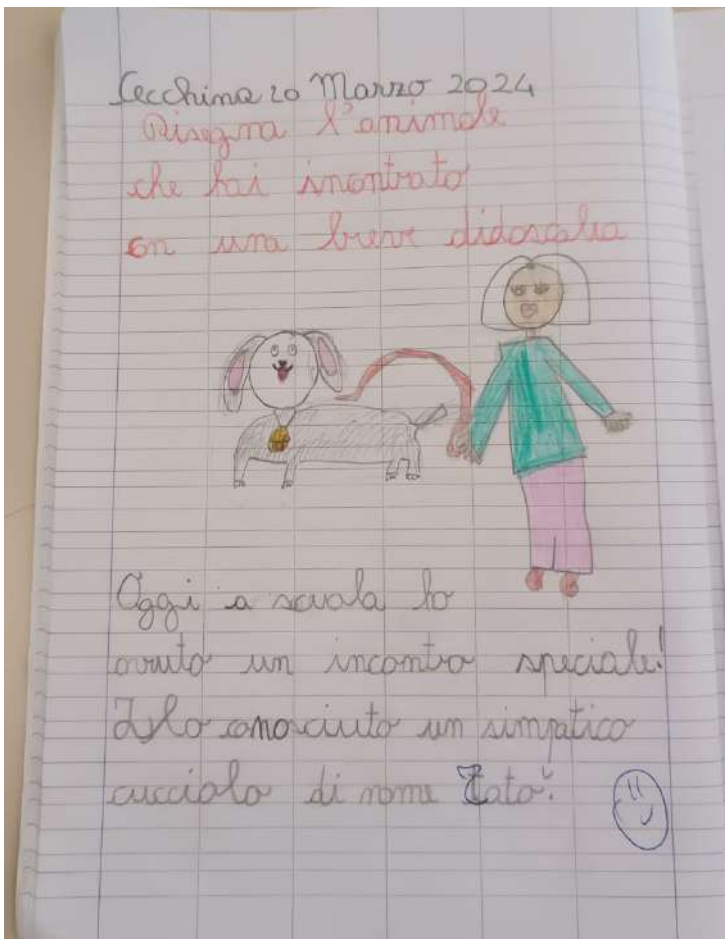 Cecchina 20 Marzo 2024
Disegna l'animale
che hai incontrato
on una breve didascalia
Oggi a scuola ho
avuto un incontro speciale!
Ho conosciuto un simpatico
cucciolo di nome Tato!